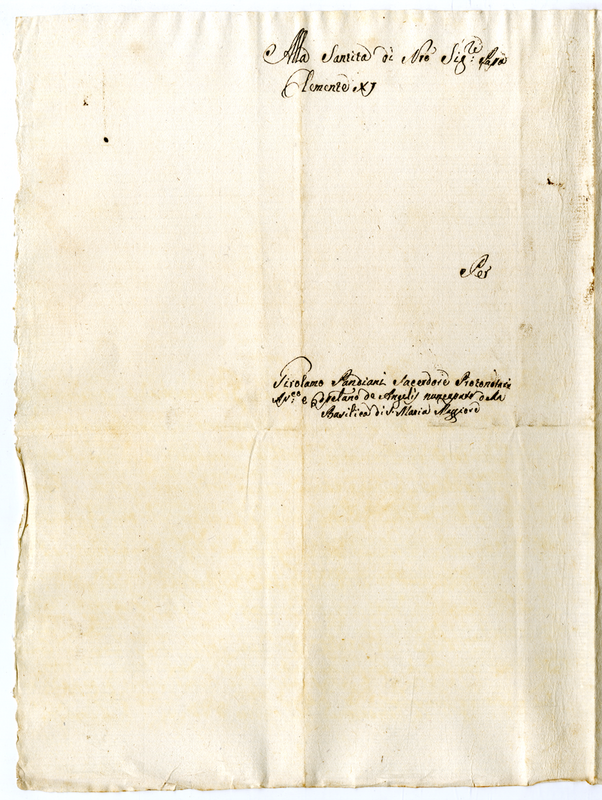 Alla Santità di Nrõ Sig:re Papa
Clemente XI
Per
Girolamo Pandiani Sacerdote Protonotario
Ap:co e Capelano de Angelis nuncupato della
Basilica di S. Maria Maggiore